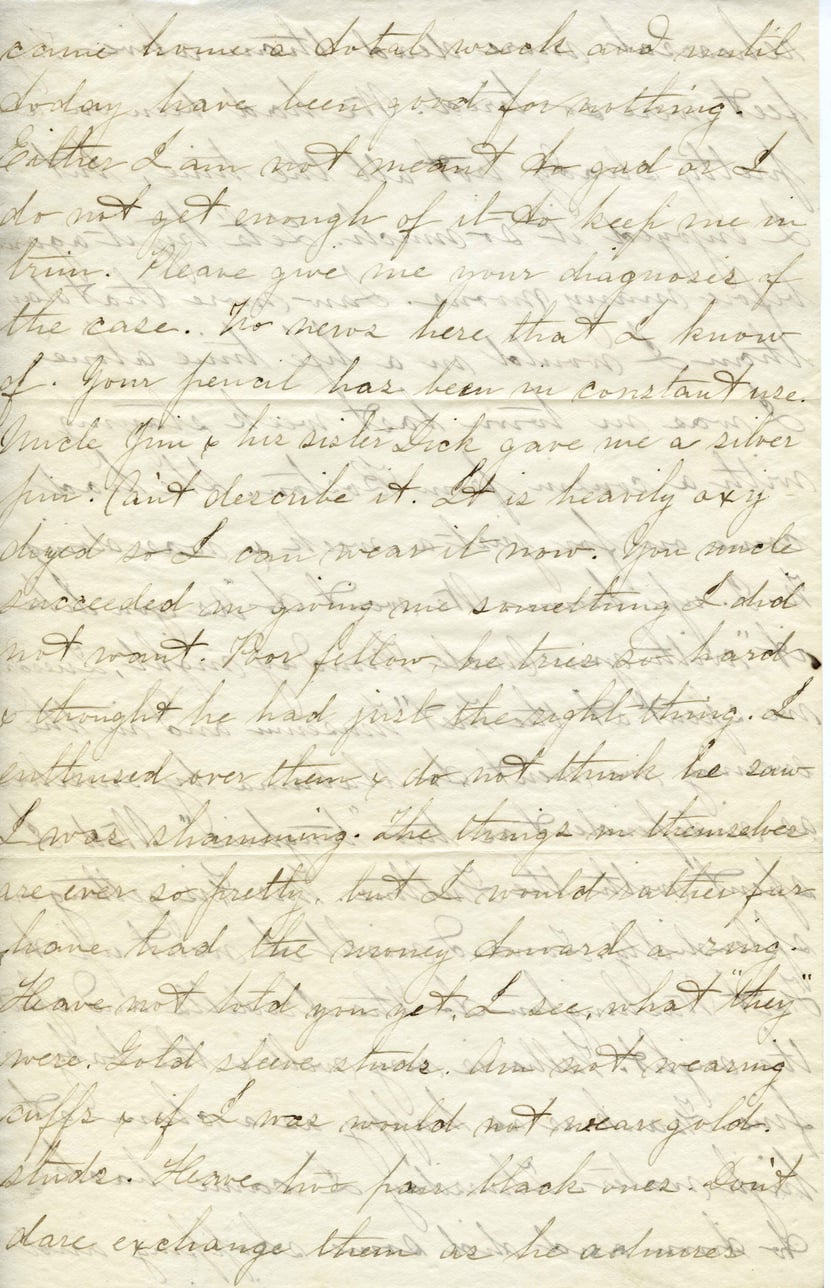 came home a total wreck and until
today have been good for nothing.
Either I am not meant to gad or I
do not get enough of it to keep me in
trim. Please give me your diagnosis of
the case. No news here that I know
of. Your pencil has been in constant use.
Uncle Jim & his sister Lick gave me a silver
pin. Can't describe it. It is heavily oxy
dized so I can wear it now. You uncle
succeeded in giving me something I did
not want. Poor fellow, he tries so hard
& thought he had just the right thing. I
enthused over them & do not think he saw
I was "shamming." The things in themselves
are ever so pretty, but I would rather far
have had the money toward a ring.
Have not told you yet, I see, what "they"
were. Gold sleeve studs. Am not wearing
cuffs & if I was would not wear gold
studs. Have two pair black ones. Don't
dare exchange them as he admires